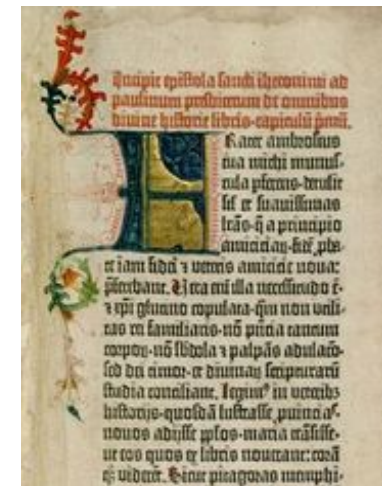 Incipit epistola sancti iheronimi ad
paulinum presbiterum de omnibus
divine historie libris·capitulū pmū.
Frater ambrosius
tua michi munus-
cula pferens·detulit
sił et suavissimas
lrās·q̄ a principio
amiciciaꝝ·fidē pba-
te iam fidei ⁊ veteris amicicie nova:
pferebant. Vera eni illa necessitudo ē·
⁊ xpi glutino copulata·qm non utili-
tas rei familiaris·nō pntia tantum
corporꝝ·nō sbdola ⁊ palpās adulacō·
sed dei timor·et divinaꝝ scripturarū
studia conciliant. Legimꝰ in veteribꝫ
historijs·quosdā lustrasse puincias·
novos adijsse pplos·maria trāsisse·
ut eos quos ex libris noverant: corā
qꝫ viderēt. Sicut pitagoras memphi-